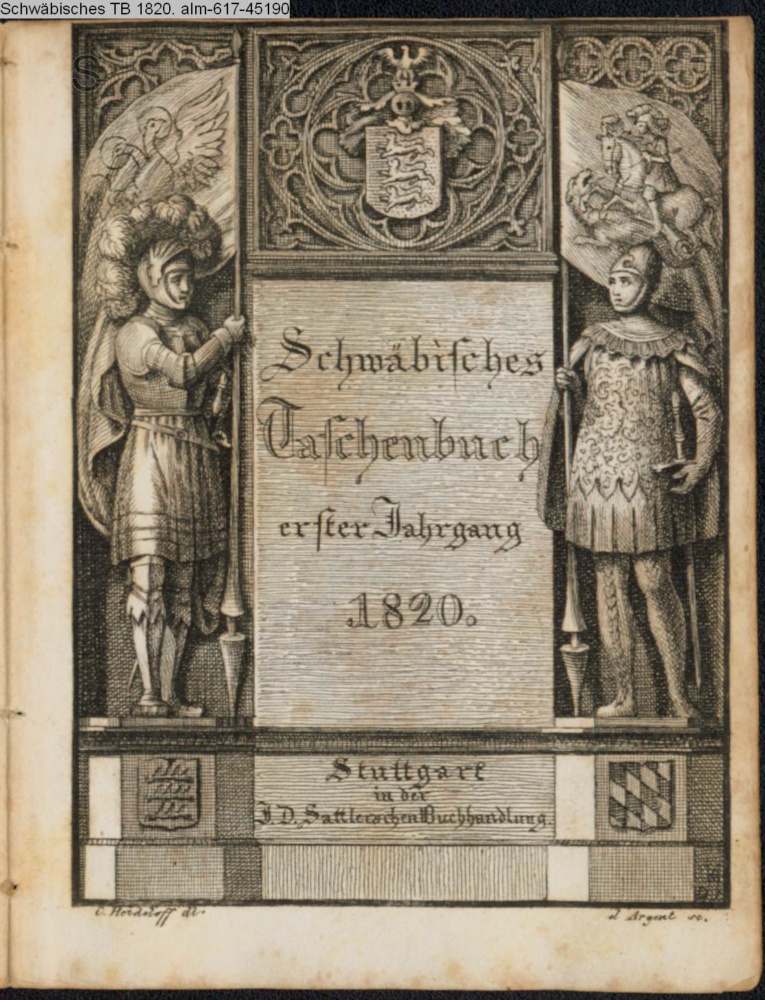 Schwäbisches TB 1820. alm-617-45190
S
Schwäbiſches
Taſchenbuch
erſter Jahrgang
1820.
Stuttgart
in der
J. D. Sattlerschen Buchhandlung.
C. Heideloff del.
d'Argent sc.